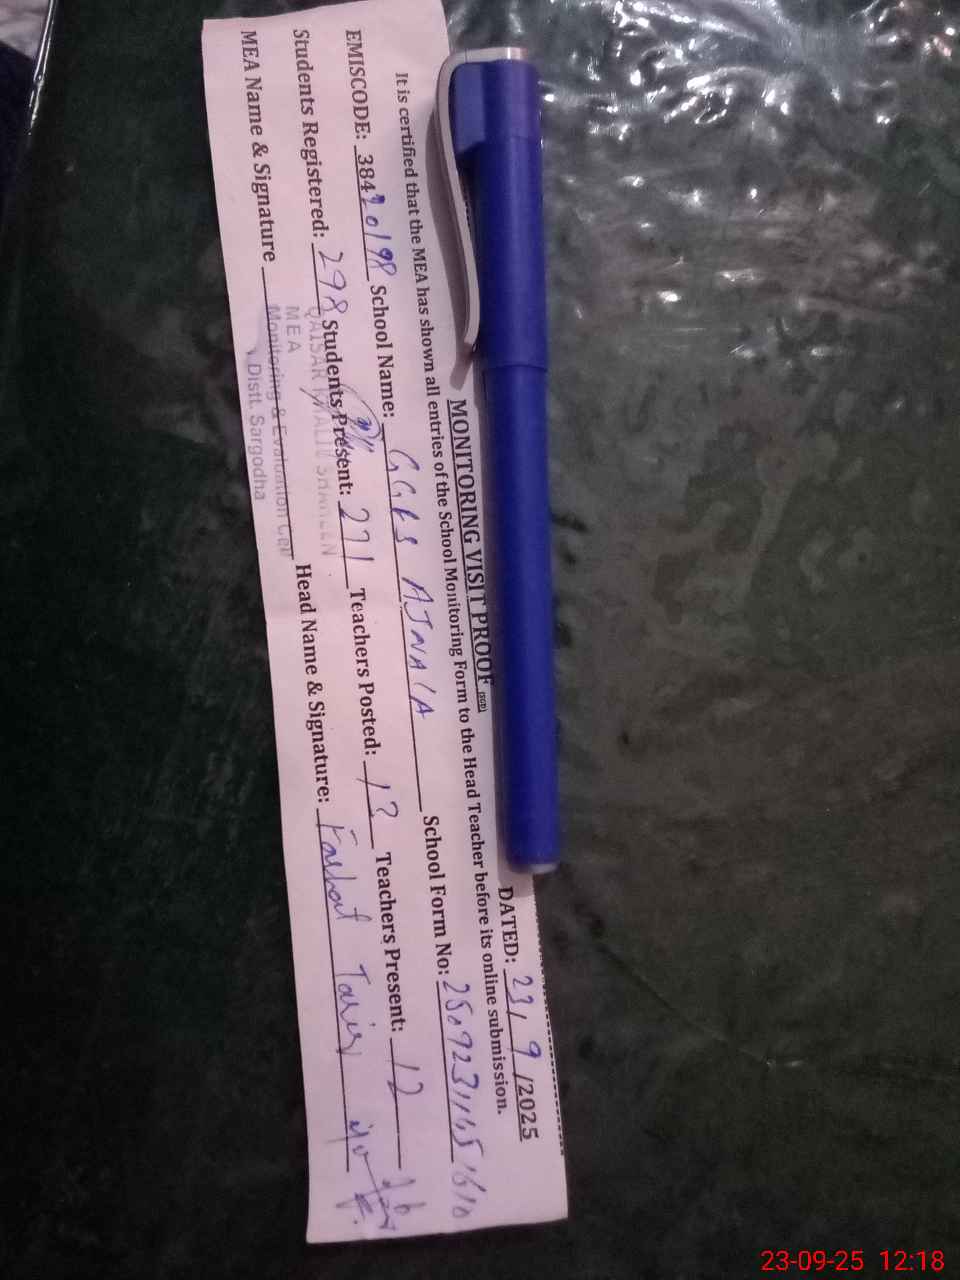 MONITORING VISIT PROOF (SGD)
DATED: 23/9/2025
It is certified that the MEA has shown all entries of the School Monitoring Form to the Head Teacher before its online submission.
EMISCODE: 38420198 School Name: GGES AJNALA School Form No:
Students Registered: 298 Students Present: 271 Teachers Posted: 12 Teachers Present: 12
MEA Name & Signature Head Name & Signature:
QAISAR SHAHEEN
MEA
Monitoring & Evaluation Cell
Distt. Sargodha
23-09-25 12:18